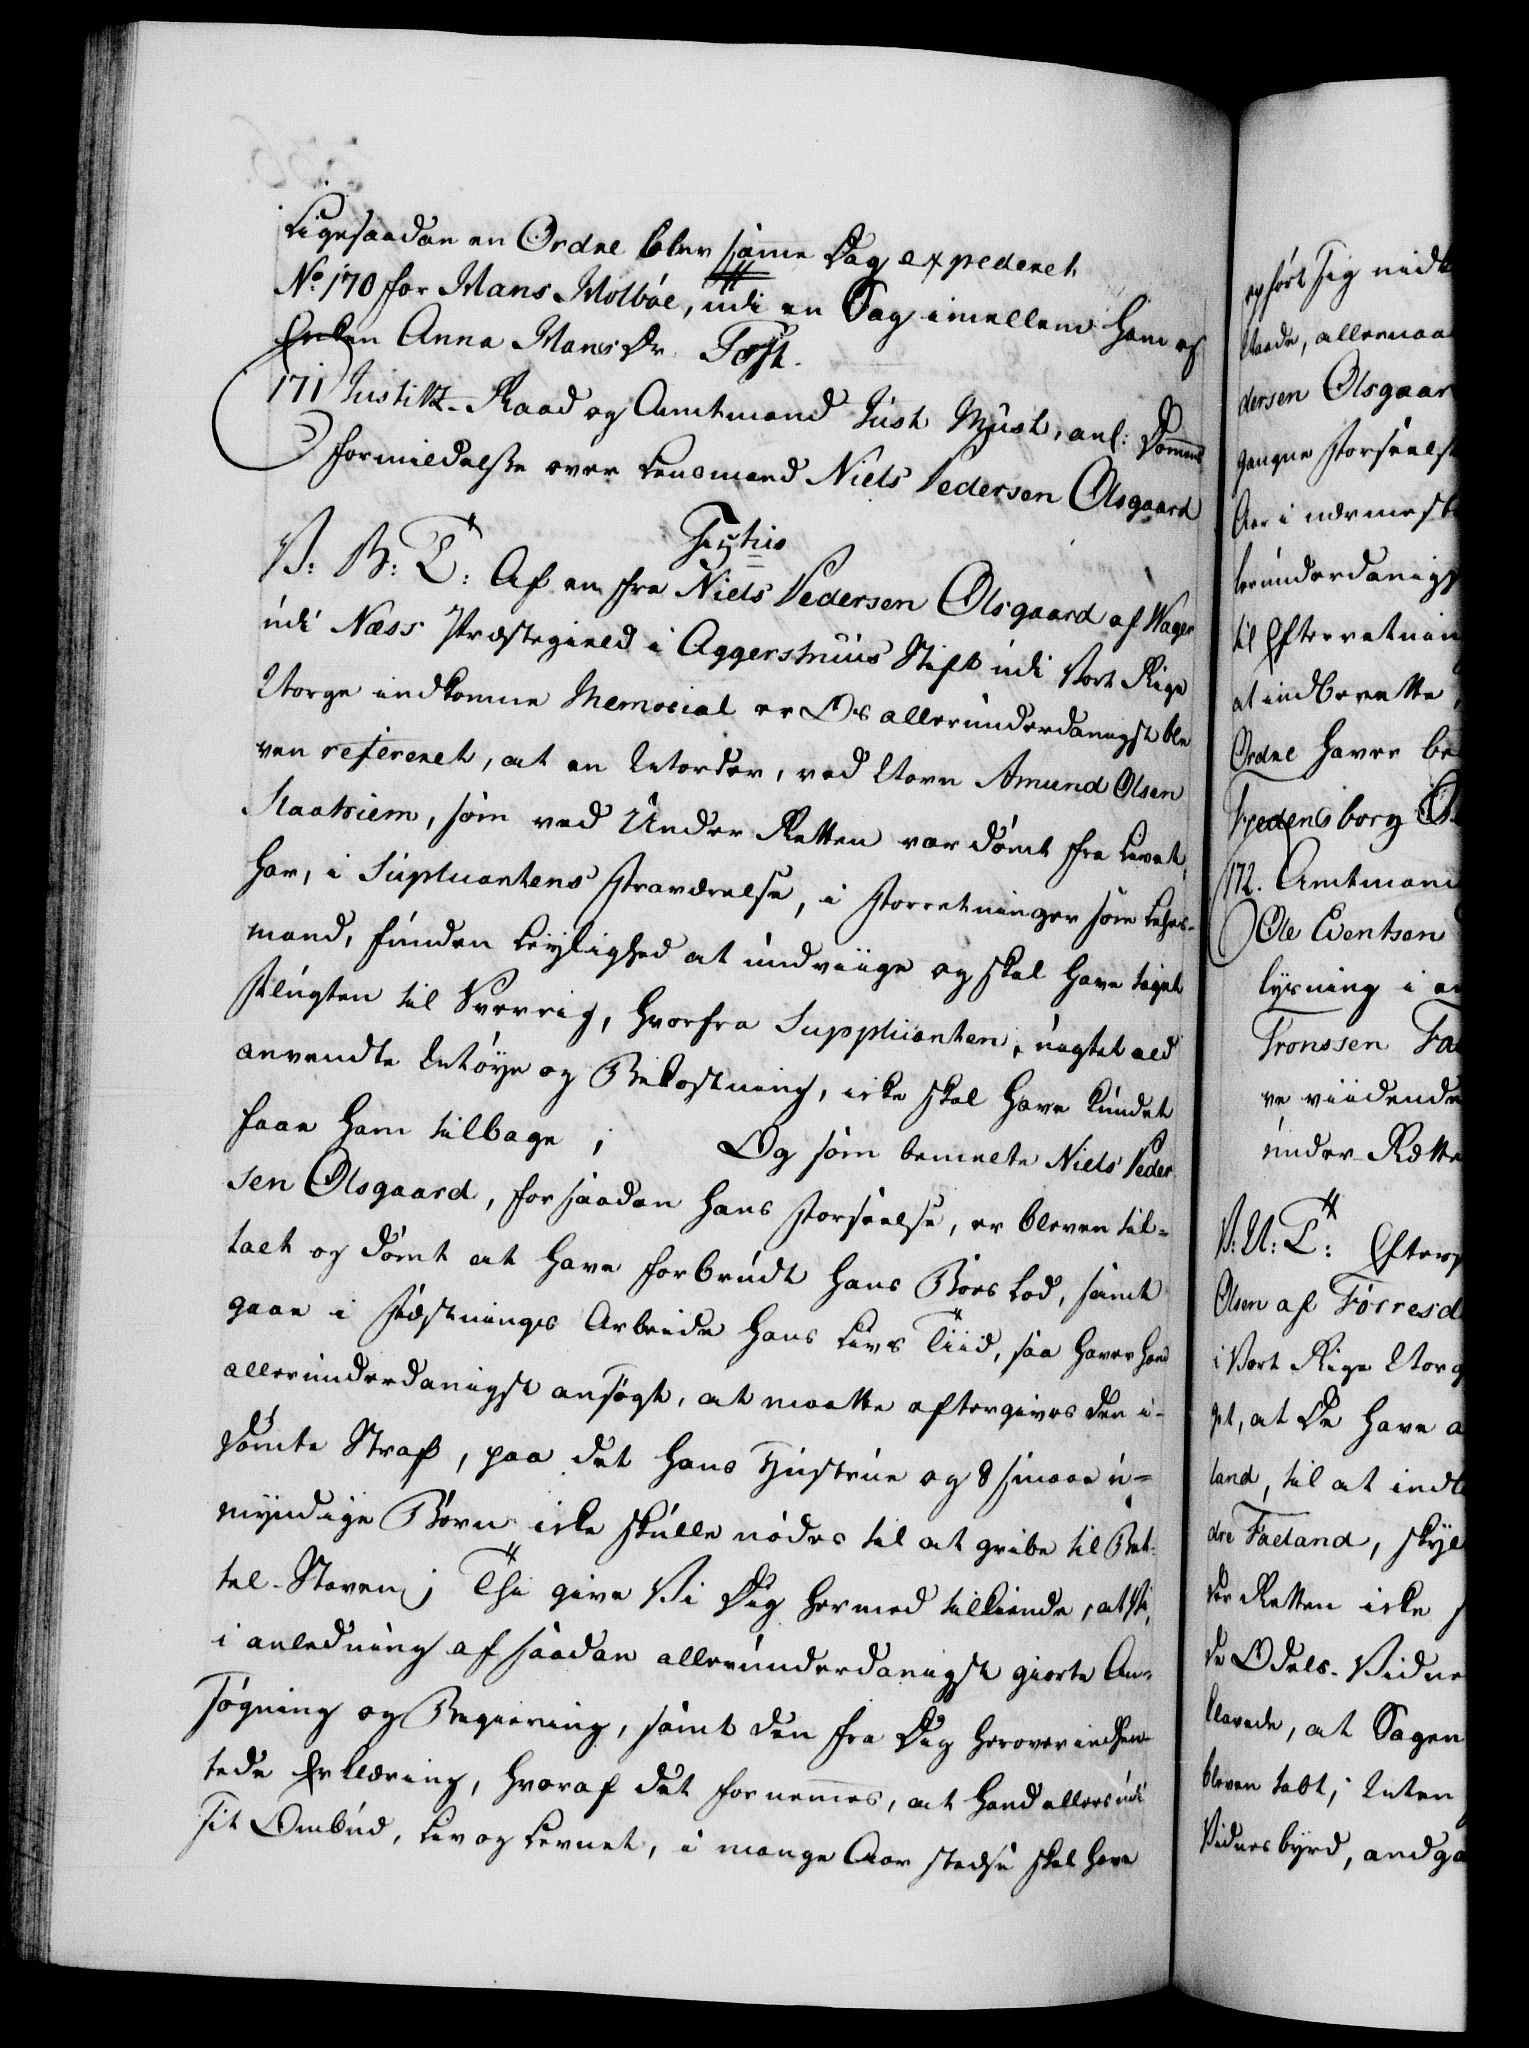 Ligesaadan en Ordre blev samme Dag expederet
No. 170 for Mans Molböe, udi en Sag imellem ham og
Enken Anna Mans Dr. Tost.
171 Justitz-Raad og Amtmand Just Must, anl: Dommens
formildelse over Lensmand Niels Pedersen Olsgaard
V: B: T: Af en fra Niels Pedersen Olsgaard af Wager
udi Næss Præstegield i Aggershuus Stift udi Vort Rige
Norge indkomne Memorial er Os allerunderdanigst ble
ven refereret, at en Morder, ved Navn Amund Olsen
som ved Under Retten var dömt fra Livet,
har, i Supliantens fraværelse, i Forretninger som Lehns-
mand, funden Leylighed at undviige og skal have taget
Flugten til Sverrig, hvorfra Supplianten, uagtet ald
anvendte Umöye og Bekostning, icke skal have kundet
faae ham tilbage; Og som bemelte Niels Peder
sen Olsgaard, for saadan hans Forseelse, er bleven til-
talt og dömt at have forbrudt hans Boes Lod, samt
gaae i Fæstnings Arbeide hans Livs Tiid, saa haver hand
allerunderdanigst ansögt, at maatte eftergives den i-
dömte Straf, paa det hans Hustrue og 8 smaae u-
myndige Börn icke skulle nödes til at gribe til Bet-
tel-Staven; Thi give Vi Dig hermed tilkiende, at Vi,
i anledning af saadan allerunderdanigst giorte An-
sögning og Begiering, samt den fra Dig herover indhen-
tede Erklæring, hvoraf det fornemmes, at hand ellers udi
sit Ombud, Liv og Levnet, i mange Aar stedse skal have
opfört sig
Maade, allernaa
dersen Olsgaar
gangne Forseels
Aar i nærmest
lerunderdanigst
til Efterretnin
at indberette
Ordre haver be
Fredensborg
172. Amtmand
Ole Eventsen
lysning i en
Tronssen
ve viidende
under-Rette
V: U: T: Efter
Olsen af Törresd
i Vort Rige Norg
get, at De have a
land, til at indl
dre Faeland, skyl
der Retten icke
de Odels-Vidne
klarede, at Sagen
bleven tabt;
Vidnesbyrd, andga